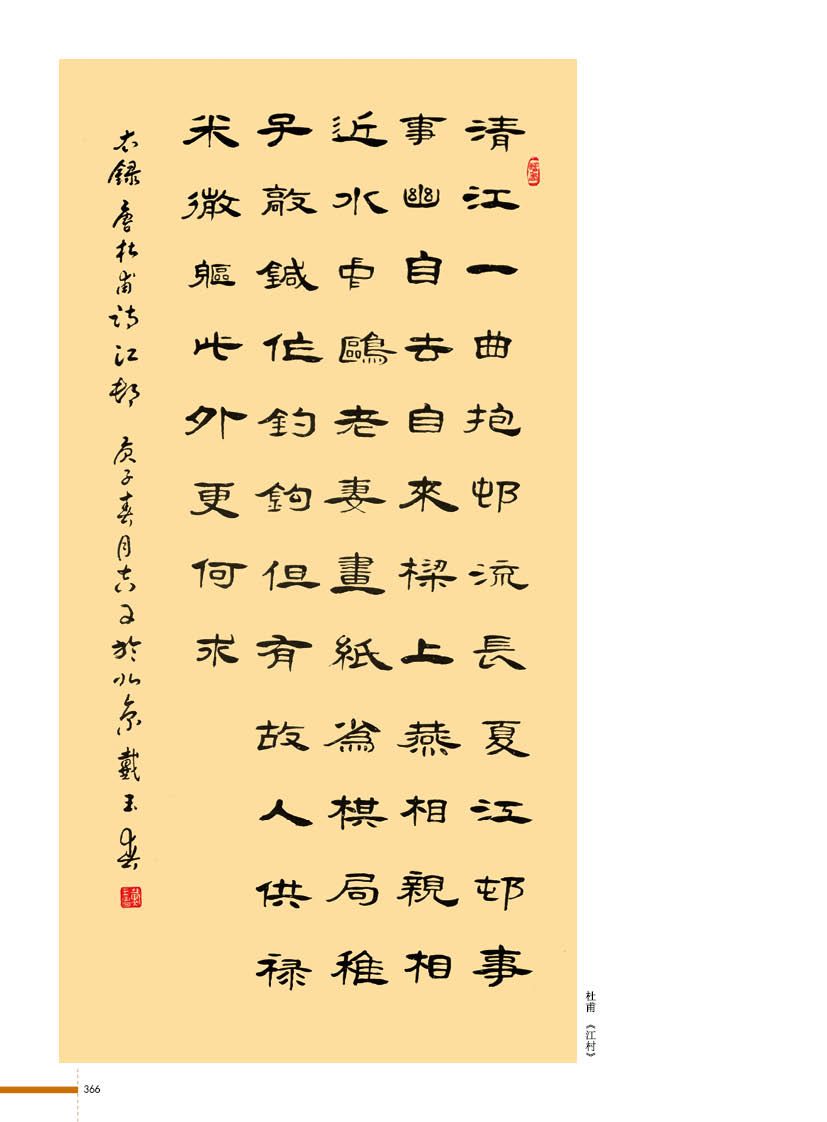 清江一曲抱邨流長夏江邨事
事幽自去自來樑上燕相親相
近水中鷗老妻畫紙爲棋局稚
子敲鍼作釣鈎但有故人供祿
米微軀此外更何求
右録唐杜甫詩江邨 庚子春月吉日於北京戴玉春
杜甫《江村》
366